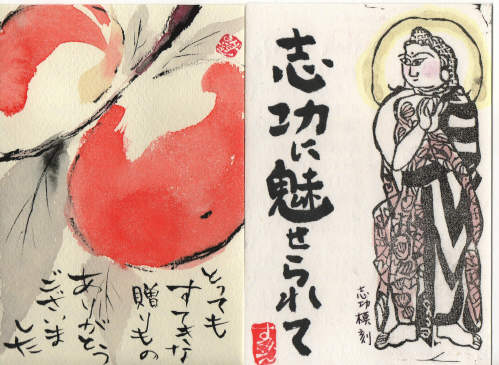 とっても
すてきな
贈りもの
ありがとう
ございま
した
志功に魅せられて
志功模刻